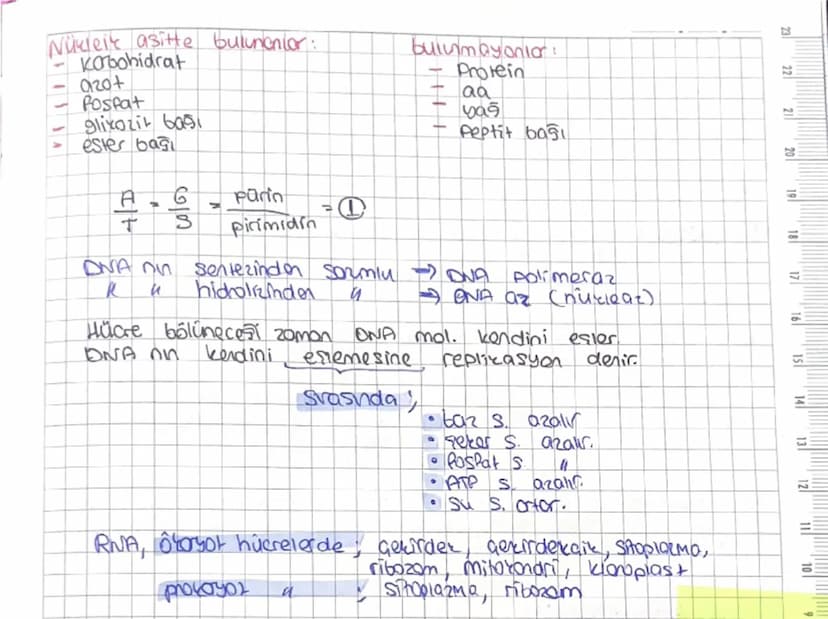 Nükleik asitte bulunanlar:
- karbohidrat
- azot
- fosfat
- glikozit bağı
- ester bağı
bulunmayanlar:
- Protein
- aa
- yağ
- peptit bağı
A/T = G/S = pürin/pirimidin = 1
DNA nın sentezinden sorumlu → DNA polimeraz
" " hidrolizinden " → DNA az (nükleaz)
Hücre bölüneceği zaman DNA mol. kendini eşler.
DNA nın kendini eşlemesine replikasyon denir.
sırasında;
• baz s. azalır
• şeker s. azalır.
• fosfat s "
• ATP s. azalır.
• su s. artar.
RNA, ökaryot hücrelerde; çekirdek, çekirdekçik, sitoplazma,
ribozom, mitokondri, kloroplast
prokaryot " ; sitoplazma, ribozom
23
22
21
20
19
18
17
16
15
14
13
12
11
10
9